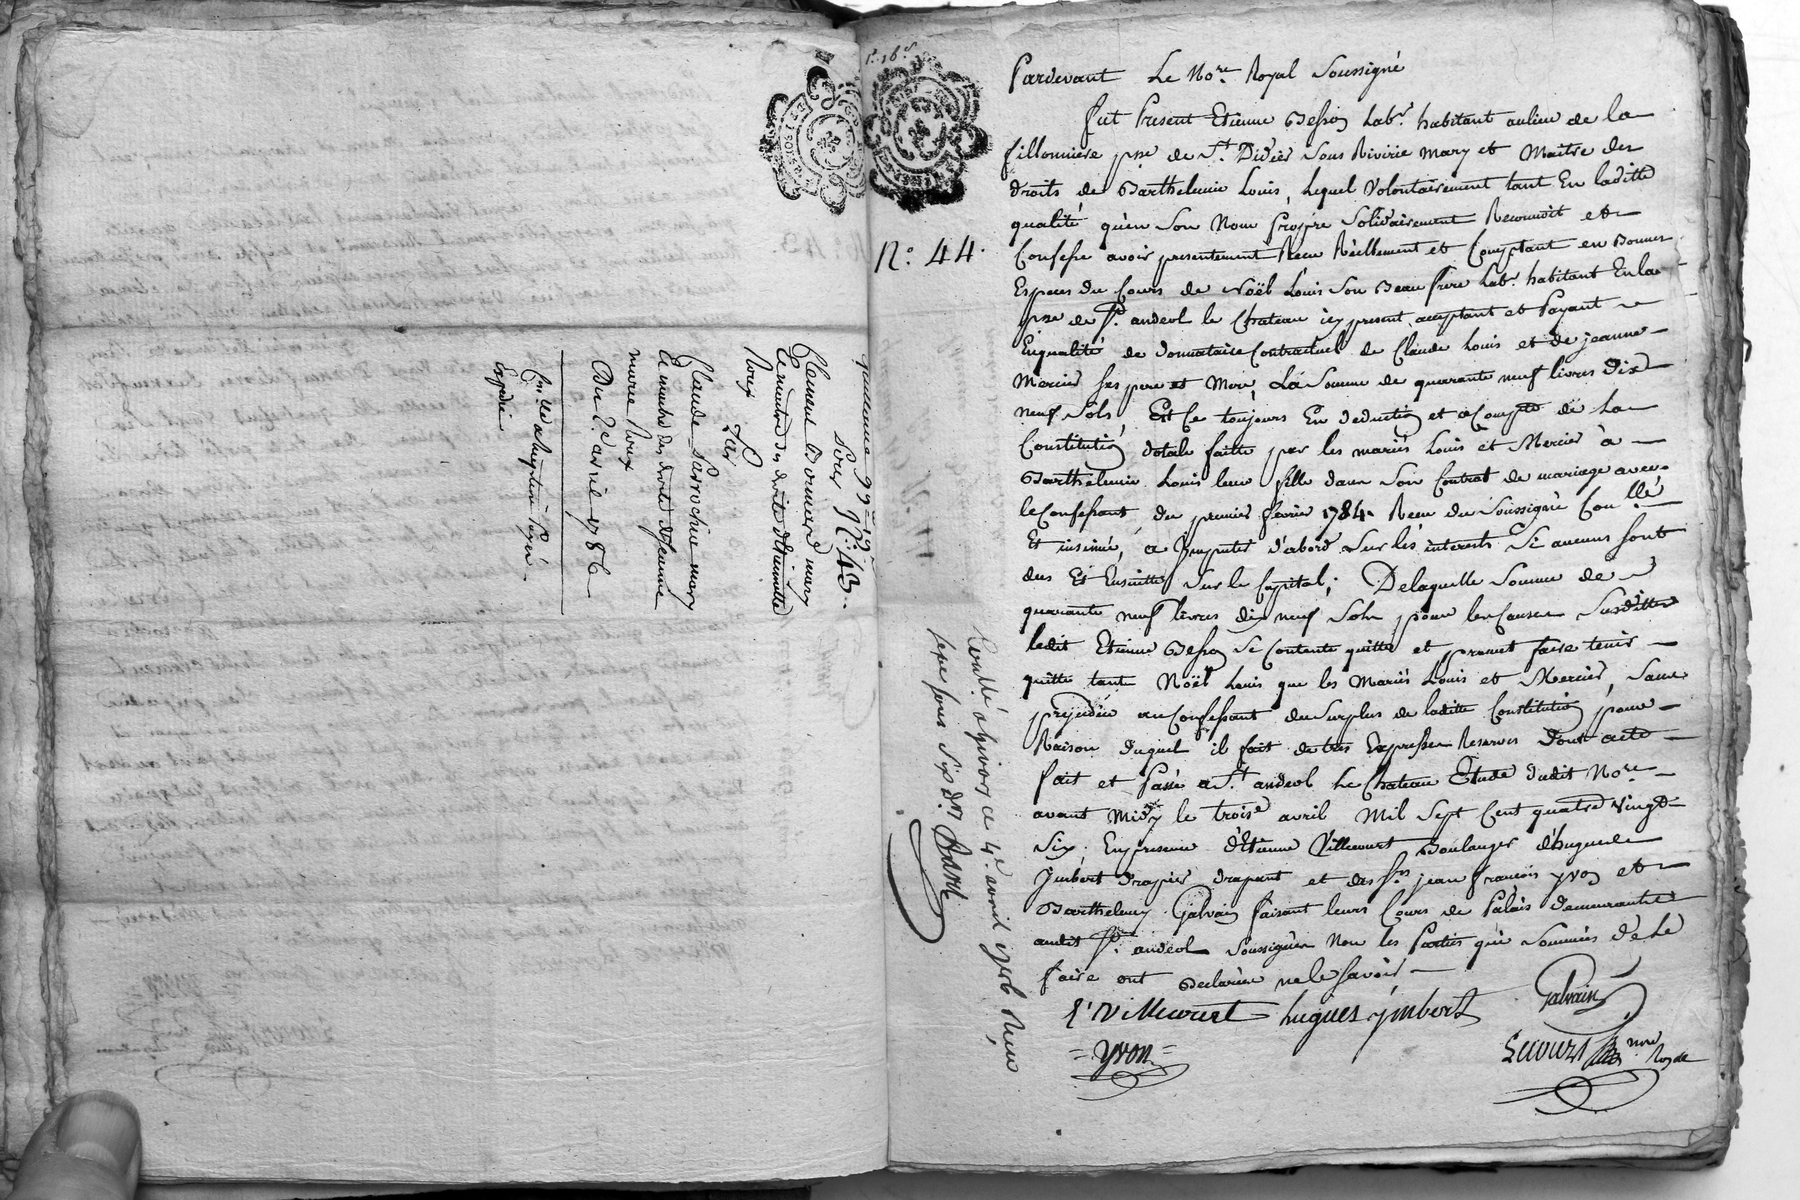 quittance 99# 19s
sous N.° 43.
Clement Bonnard mary
et maitre des droits d'Etiennette
Roux
Sur
Claude Parrochia mary
et maitre des droits de Jeanne
marie Roux
Du 2.e avril 1786
Expedié
N.° 44.
Pardevant Le No.re Royal Soussigné
fut Present Etienne Besson Lab.r habitant au lieu de la
fillonniere p.sse de S.t Didier Sous Riverie mary et Maitre des
droits de Barthelemie Louis, lequel Volontairement tant En laditte
qualité qu'en Son Nom Propre Solidairement Reconnoit et
Confesse avoir presentement Reçu Réellement et Comptant en Bonnes
Especes du Cours de Noël Louis Son Beau frere Lab.r habitant En la
p.sse de S.t andeol le Chateau icy present, acceptant et Payant
En qualité de donnataire Contractuel de Claude Louis et de jeanne
Mercier Ses pere et Mere, La Somme de quarante neuf livres Dix
neuf Sols Et Ce toujours En deduction et acompte de La
Constitution dotale faitte par les mariés Louis et Mercier à
Barthelemie Louis leur fille dans Son Contrat de mariage avec
le Confessant, du premier fevrier 1784. Recu du Soussigné Con.llé
Et insinué, a Imputer d'abord Sur les interests Si aucuns Sont
dus Et Ensuitte Sur le Capital; De laquelle Somme de
quarante neuf livres dix neuf Sols pour les Causes Susdittes
ledit Etienne Besson Se Contente quitte et promet faire tenir
quitte tant Noël Louis que les Mariés Louis et Mercier, Sans
prejudice au Confessant du Surplus de laditte Constitution pour
Raison duquel il fait de tres Expresses Reserves Dont acte
fait et Passé a S.t andeol le Chateau Etude dudit No.re
avant Midy le trois.e avril Mil Sept Cent quatre vingt
Six. En presence d'Etienne Villecourt Boulanger d'hugues
Imbert Drapier drapant et des S.rs jean francois yvon et
Barthelemy Galvain faisant leurs Cours de Palais demeurants
audit S.t andeol Soussignés Non les Parties qui Sommées de Le
faire ont Declarées ne le Savoir
E' Villecourt hugues ymbert Galvain
= yvon =
Secours No.re Royal
Controllé a Givors ce 4.e avril 1786 Recu